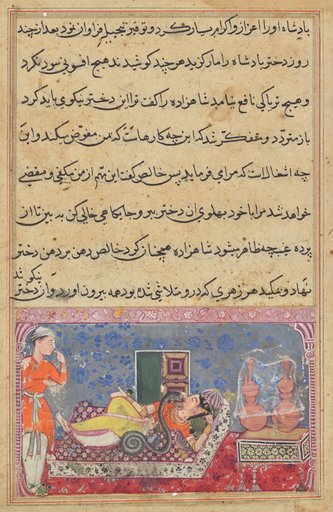 پادشاه اورا اعزاز و اکرام بسیار کرد و توقیر و تبجیل فراوان نمود بعد از چند
روز دختر پادشاه را مار گزید هر چند کوشیدند هیچ افسونی سود نکرد
و هیچ تریاکی نافع نیامد شاهزاده را گفت ترا این دختر نیکو می باید کرد
باز متردد و متفکر شد که این چه کارهاست که بمن مفوض میکند و این
چه اشغال است که مرا می فرماید پس خالص گفت این مهم از من مکفی و مقضی
خواهد شد مرا با خود پهلوی آن دختر ببر و جایگاهی خالی کن به بین تا از
پرده غیب چه ظاهر میشود شاهزاده همچنان کرد خالص دهن بر دهن دختر
نهاد و بمکید هر زهری که در و متلاشی شده بود همه بیرون آورد و آن دختر نیکو شد